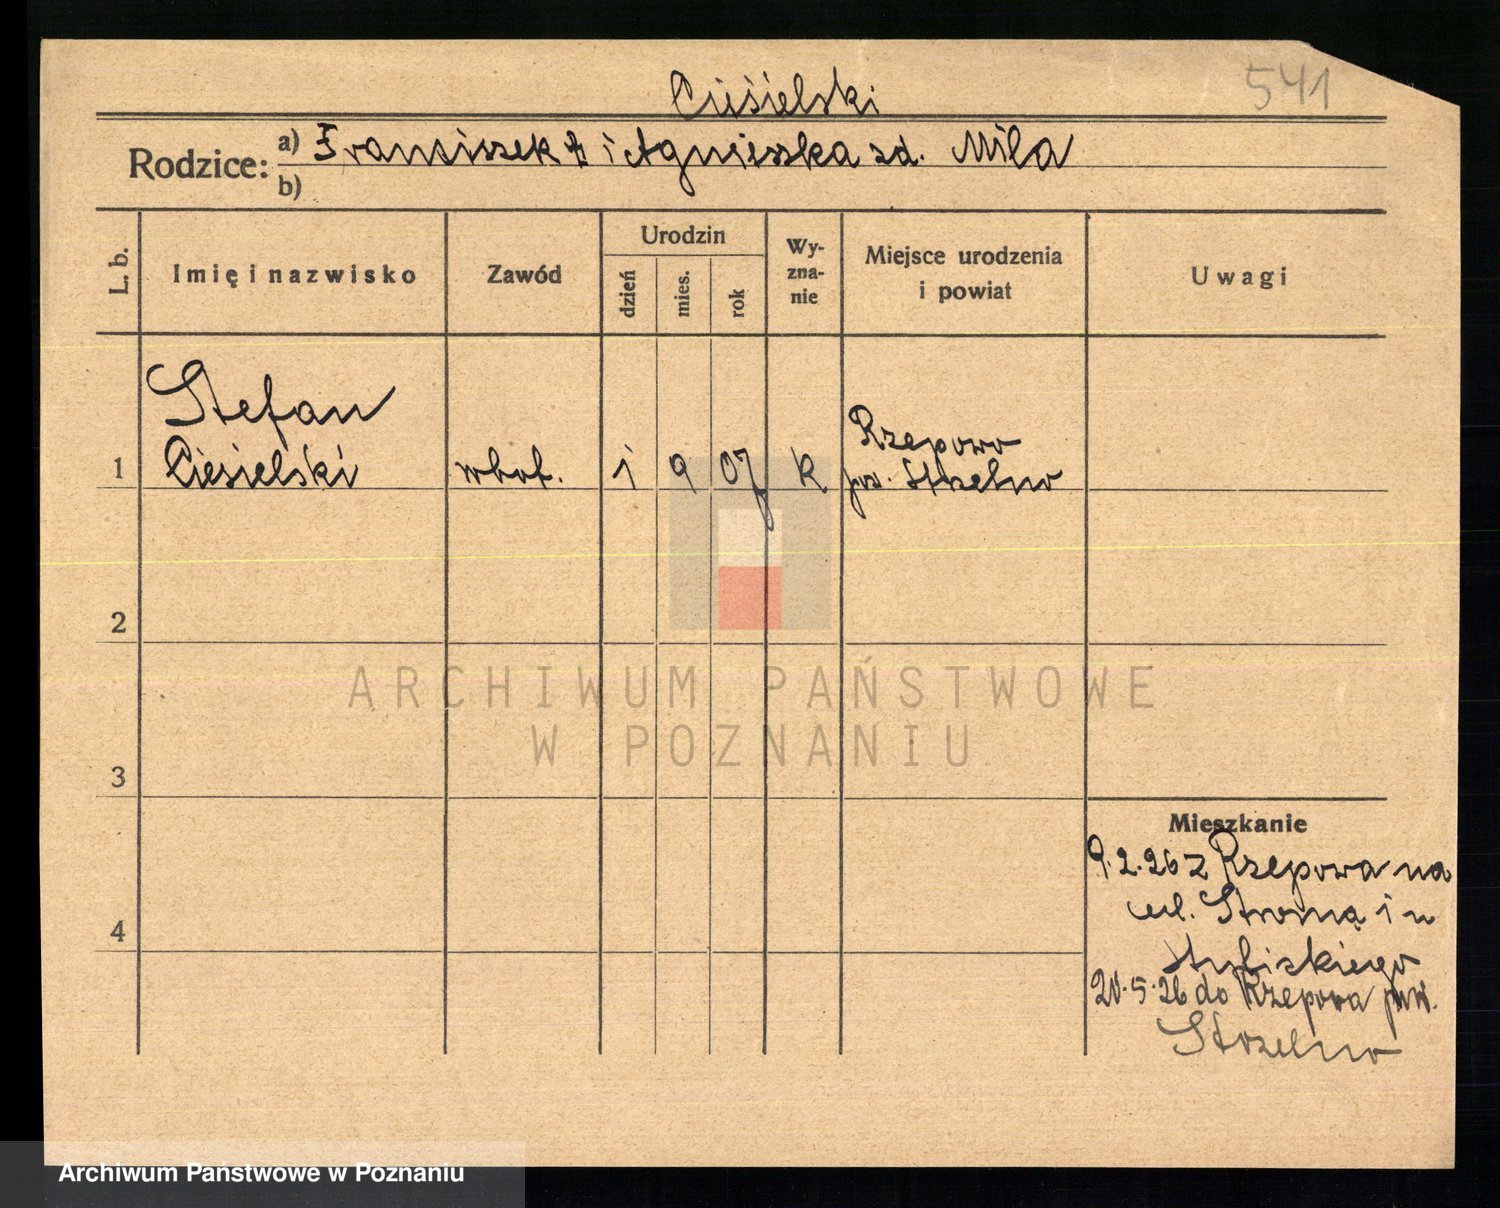 541
Ciesielski
Rodzice: a) Franciszek † i Agnieszka zd. Mila
b)
L. b. Imię i nazwisko Zawód Urodzin dzień mies. rok Wy-zna-nie Miejsce urodzenia i powiat Uwagi
Stefan
Rzepowo
1 Ciesielski robot. 1 9 07 k pow. Strzelno
2
ARCHIWUM PAŃSTWOWE
W POZNANIU
3
Mieszkanie
9.2.26 z Rzepowa na
ul. Stromą 1 u
4
20.5.26 do Rzepowa pow.
Strzelno
Archiwum Państwowe w Poznaniu